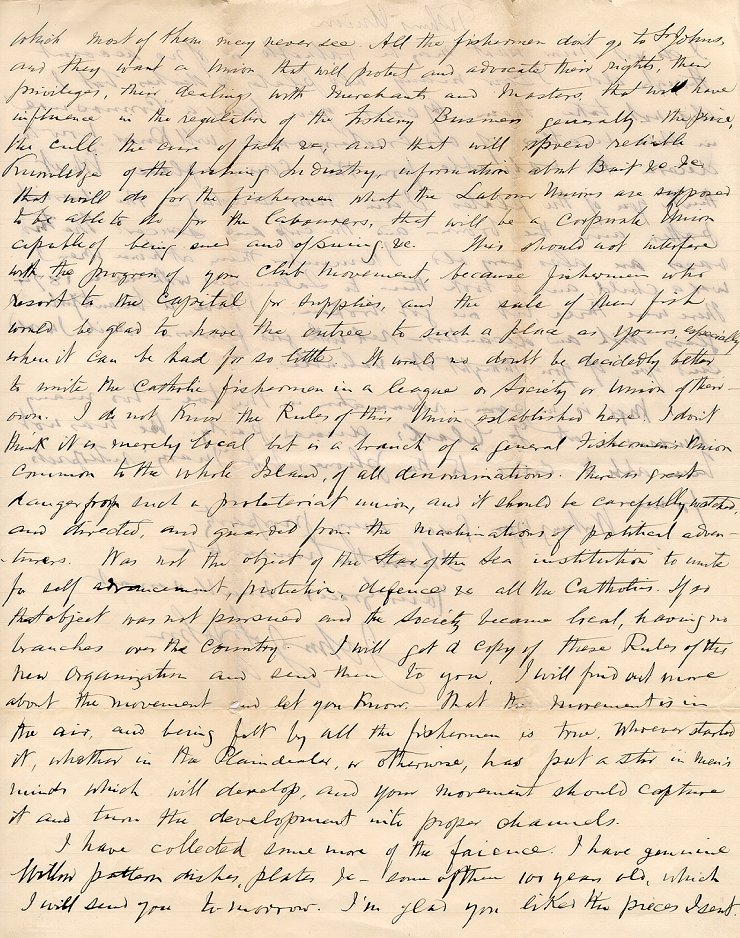 which most of them may never see. All the fishermen don't go to St Johns,
and they want a Union that will protect and advocate their rights, their
privileges, their dealings with Merchants and Masters, that will have
influence in the regulation of the Fishery Business generally the price,
the cull the cure of fish &c, and that will spread reliable
Knowledge of the fishing Industry, information about Bait &c &c
that will do for the fishermen what the Labour Unions are supposed
to be able to do for the labourers, that will be a corporate Union
capable of being sued and of suing &c. This should not interfere
with the progress of your Club movement, because fishermen who
resort to the Capital for supplies, and the sale of their fish
would be glad to have the entree to such a place as yours, especially
when it can be had for so little. It would no doubt be decidedly better
to unite the Catholic fishermen in a league or Society or Union of their
own. I do not Know the Rules of this Union established here. I don't
think it is merely local but is a branch of a general Fishermens Union
common to the whole Island, of all denominations. There is great
danger from such a protetariat union, and it should be carefully watched,
and directed, and guarded from the machinations of political adven-
-turers. Was not the object of the Star of the Sea institution to unite
for self advancement, protection, defence &c all the Catholics. If so
that object was not pursued and the Society became local, having no
branches over the Country. I will get a copy of these Rules of this
new Organization and send them to you. I will find out more
about the movement and let you Know. That the movement is in
the air, and being felt by all the fishermen is true. Whoever started
it, whether in the Plaindealer, or otherwise, has put a stir in men's
minds which will develop, and your movement should capture
it and turn the development into proper channels.
I have collected some more of the faience. I have genuine
Willow pattern dishes, plates &c - some of them 100 years old, which
I will send you to-morrow. I'm glad you liked the pieces I sent.